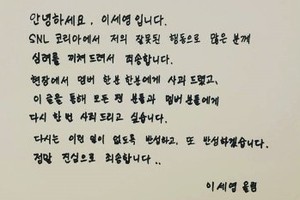 안녕하세요, 이세영입니다.
SNL 코리아에서 저의 잘못된 행동으로 많은 분께
심려를 끼쳐드려서 죄송합니다.
현장에서 멤버 한분한분에게 사과 드렸고,
이 글을 통해 모든 팬 분들과 멤버분들에게
다시 한 번 사죄 드리고 싶습니다.
다시는 이런 일이 없도록 반성하고, 또 반성하겠습니다.
정말 진심으로 죄송합니다..
이세영 올림